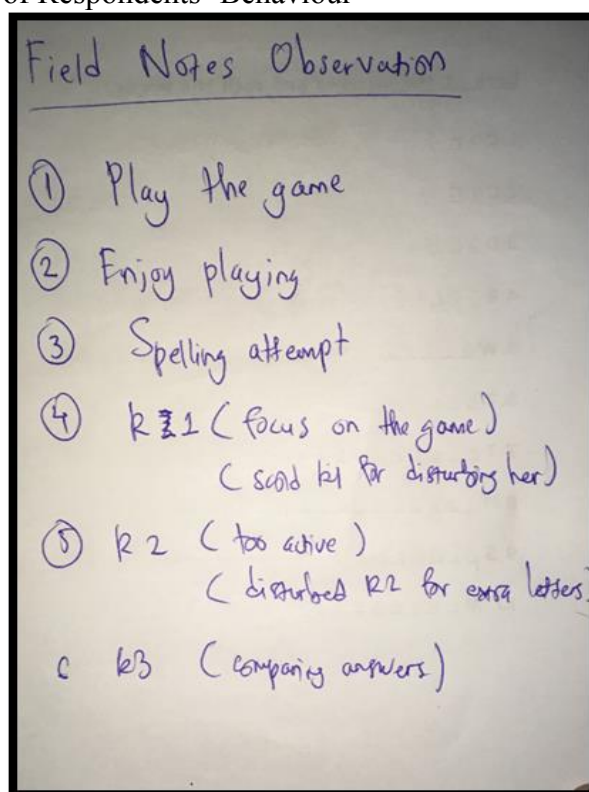 of Respondents' Behaviour
Field Notes Observation
① Play the game
② Enjoy playing
③ Spelling attempt
④ R 1 (focus on the game)
(scold for disturbing her)
⑤ R 2 (too active)
(disturbed R2 for extra letters)
R3 (comparing answers)